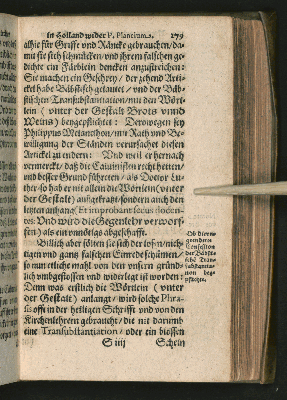 in Holland wider P. Plancium. 279
alhie für Griffe vnd Räncke gebrauchen / da-
mit sie sich schmücken vnd jhrem falschen ge-
dichte ein Färblein dencken anzustreichen:
Sie machen ein Geschrey / der zehend Arti-
ckel habe Bäbstisch gelautet / vnd der Bäb-
stischen Transubstantiation / mit den Wört-
lein ( vnter der Gestalt Brots vnnd
Weins ) beygepflichtet: Derowegen sey
Philippus Melanthon / mit Rath vnd Be-
willigung der Ständen verursachet diesen
Artickel zu endern: Vnd weil er hernach
vermerckt / daß die Caluinisten recht hetten /
vnd besser Grund führeten / als Doctor Lu-
ther / so hab er nit allein die Wörtlein (vnter
der Gestalt) außgekratzt / sondern auch den
letzten anhang (Et improbant secus docen-
tes: Vnd wird die Gegenlehr verworf-
fen) als ein vnnötiges abgeschafft.
Billich aber solten sie sich der losen / nich-
tigen vnd gantz falschen Einrede schämen /
so nun etliche mahl von den vnsern gründ-
lich vmbgestossen vnd widerlegt ist worden:
Denn was erstlich die Wörtlein ( vnter
der Gestalt) anlangt / wird solche Phra-
sis offt in der heiligen Schrifft vnd von den
Kirchenlehrern gebraucht / die nit darumb
eine Transubstantiation / oder ein blossen
S iiij Schein
Confession
der Bäbsti-
sche Tran-
substantia-
tion bey-
pflichte.